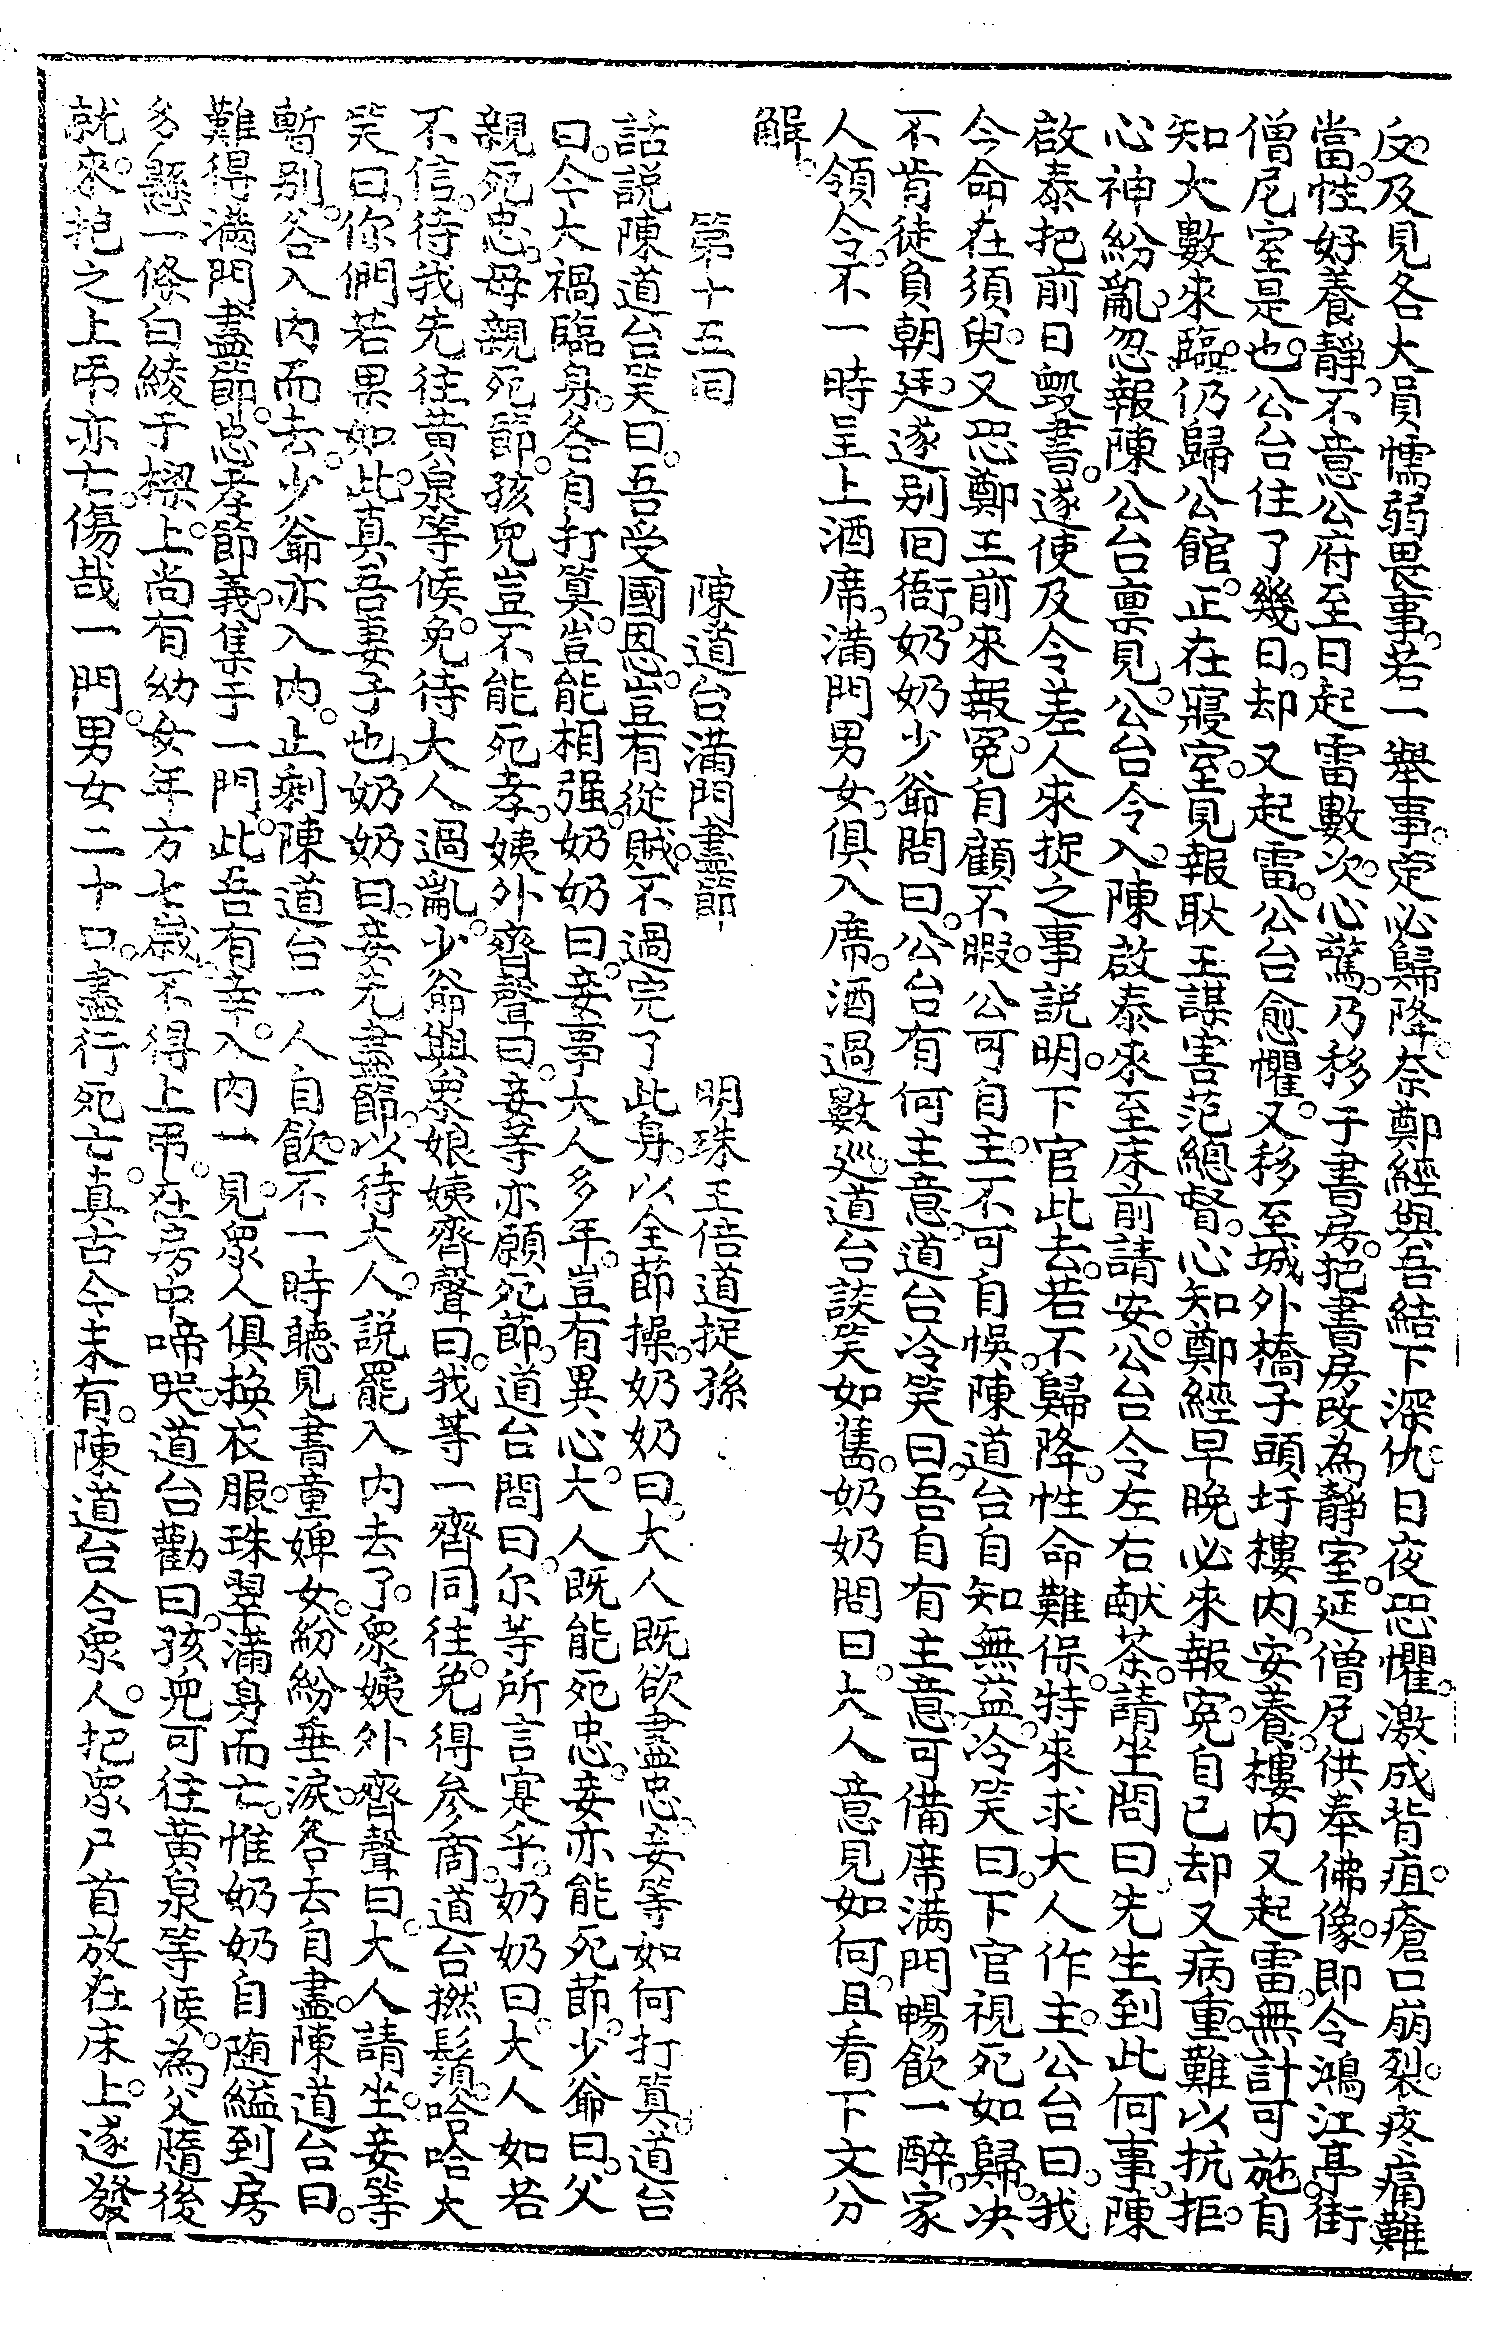 反及見各大員懦弱畏事。若一舉事。定必歸降。奈鄭經與吾結下深仇。日夜恐懼。激成背疽。瘡口崩裂。疼痛難
當。性好養靜。不意公府至日起雷數次。心驚。乃移于書房。把書房改為靜室。延僧尼供奉佛像。即今鴻江亭街
僧尼室是也。公台住了幾日。却又起雷。公台愈懼。又移至城外橋子頭圩樓內。安養。樓內又起雷。無計可施。自
知大數來臨。仍歸公館。正在寢室。見報耿王謀害范總督。心知鄭經早晚必來報寃。自已却又病重。難以抗拒。
心神紛亂。忽報陳公台禀見。公台令入。陳啟泰來至床前請安。公台令左右献茶。請坐問曰。先生到此何事。陳
啟泰把前日毀書。遂使及令差人來捉之事說明。下官此去。若不歸降。性命難保。特來求大人作主。公台曰。我
今命在須臾。又恐鄭王前來報冤。自顧不暇。公可自主。不可自悞。陳道台自知無益。冷笑曰。下官視死如歸。决
不肯徒負朝廷。遂別回衙。奶奶少爺問曰。公台有何主意。道台冷笑曰。吾自有主意。可備席滿門暢飲一醉。家
人領令。不一時呈上酒席。滿門男女。俱入席。酒過數廵。道台談笑如舊。奶奶問曰。大人意見如何。且看下文分
解。
第十五回　陳道台滿門盡節　明珠王倍道捉孫
話說陳道台笑曰。吾受國恩。豈有從賊。不過完了此身。以全節操。奶奶曰。大人既欲盡忠。妾等如何打算。道台
曰。今大禍臨身。各自打算。豈能相强。奶奶曰。妾事大人多年。豈有異心。大人既能死忠。妾亦能死節。少爺曰。父
親死忠。母親死節。孩兒豈不能死孝。姨外齊聲曰。妾等亦願死節。道台問曰。尔等所言寔乎。奶奶曰。大人如若
不信。待我先往黃泉等候。免待大人過亂。少爺與衆娘姨齊聲曰。我等一齊同往。免得參商。道台撚鬚哈哈大
笑曰。你們若果如此。真吾妻子也。奶奶曰。妾先盡節。以待大人。說罷入內去了。衆姨外齊聲曰。大人請坐。妾等
暫别。各入內而去。少爺亦入內。止剩陳道台一人自飲。不一時聽見書童婢女。紛紛垂淚。各去自盡。陳道台曰。
難得滿門盡節。忠孝節義。集于一門。此吾有幸。入內一見。衆人俱換衣服。珠翠滿身而亡。惟奶奶自随縊到房
多懸一條白綾于樑上。尚有幼女年方七歲。不得上吊。在房中啼哭。道台勸曰。孩兒可往黃泉等候。為父隨後
就來。抱之上吊亦亡。傷哉一門。男女二十口。盡行死亡。真古今未有。陳道台令衆人。把衆尸首放在床上。遂發